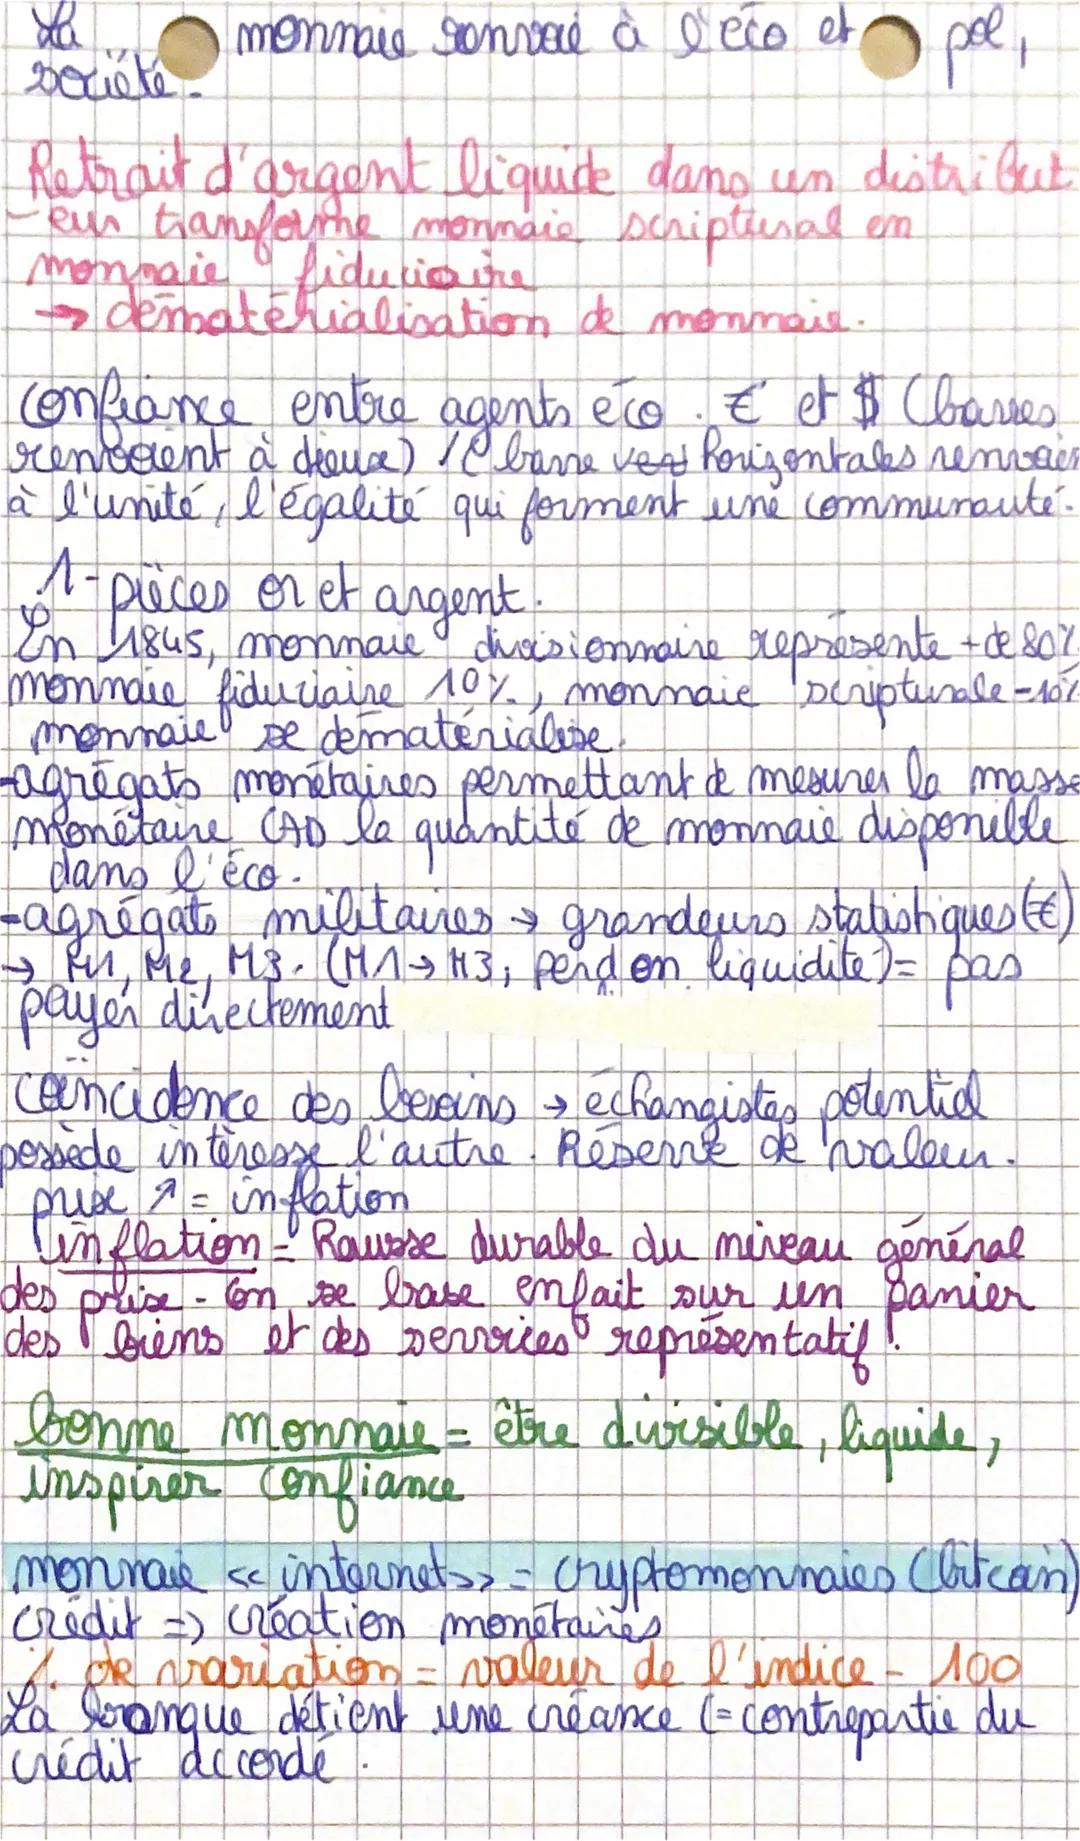 La monnaie renvoie à l'éco et pol,
société.
Retrait d'argent liquide dans un distribut
-eur transforme monnaie scriptural en
monnaie fiduciaire
→ dématérialisation de monnaie.
confiance entre agents éco. € et $ (barres
renvoient à dieux) /€ barre horizontales renvoien
à l'unité, l'égalité qui forment une communauté.
1-pièces or et argent.
En 1845, monnaie divisionnaire représente + de 80%
monnaie fiduciaire 10%, monnaie scripturale -10%
monnaie se dématérialise.
-agrégats monétaires permettant de mesurer la masse
monétaire CAD la quantité de monnaie disponible
dans l'éco.
-agrégats militaires → grandeurs statistiques (€)
→ M1, M2, M3. (M1→M3, perd en liquidité) = pas
payer directement
coïncidence des besoins → échangistes potentiel
possède intéresse l'autre. Réserve de valeur.
prix ↗ = inflation
inflation = Hausse durable du niveau général
des prix - On se base enfait sur un panier
des biens et des services représentatif.
bonne monnaie = être divisible, liquide,
inspirer confiance
monnaie << internet>> = cryptomonnaies (bitcoin)
crédit => création monétaires
% de variation = valeur de l'indice - 100
La banque détient une créance (= contrepartie du
crédit accordé.